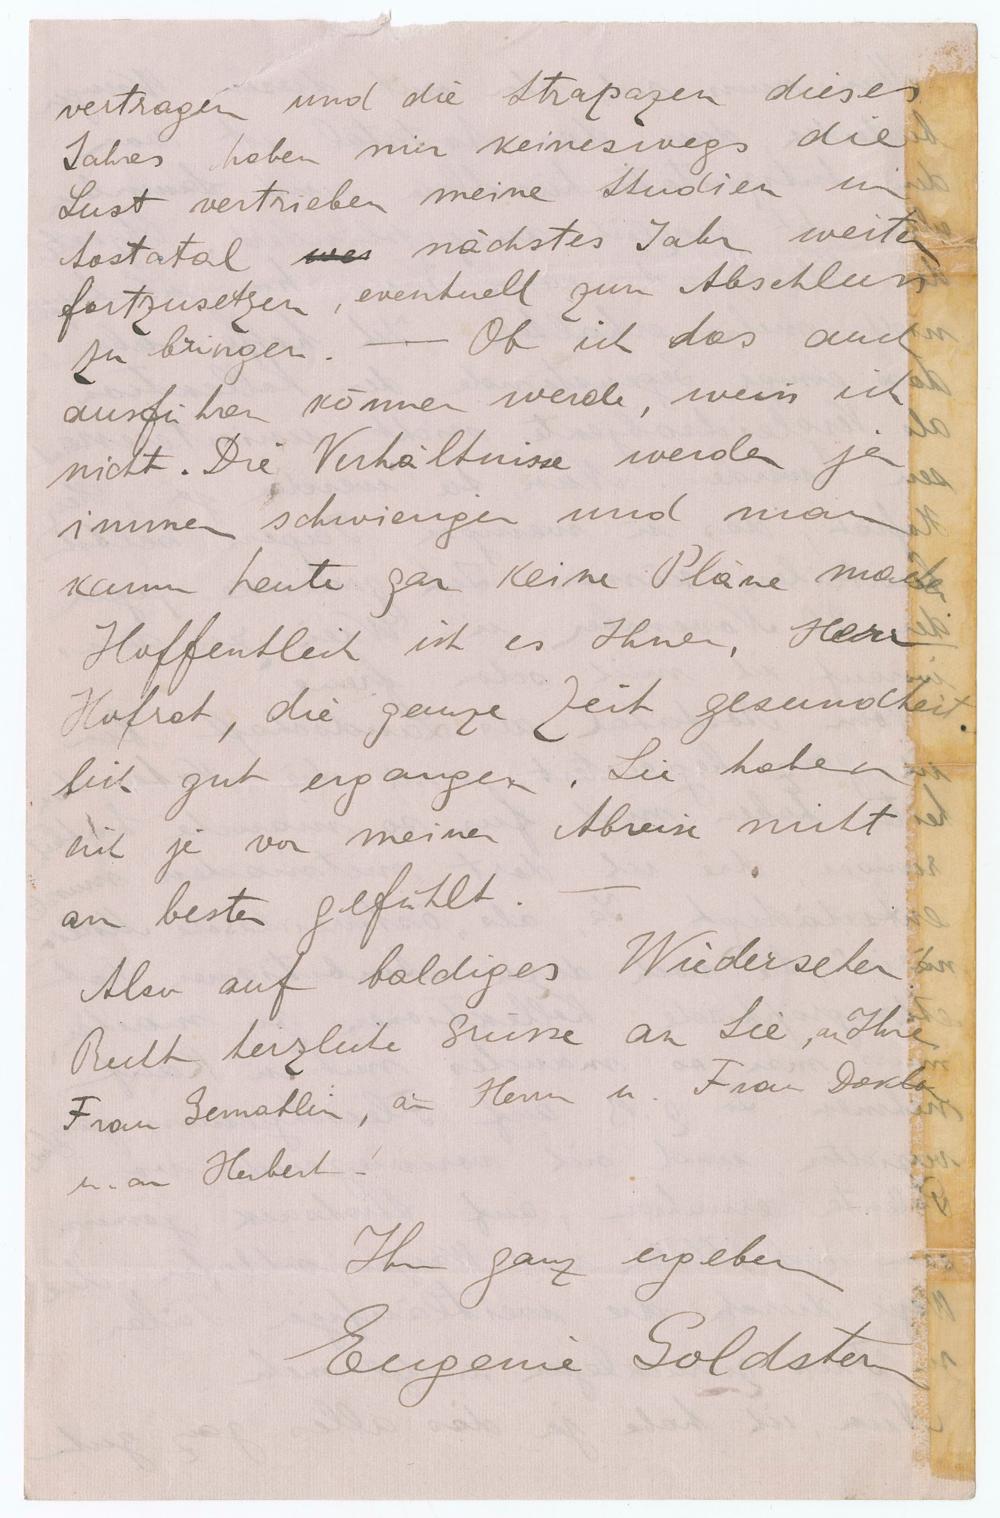 vertragen und die Strapazen dieses
Jahres haben mir keineswegs die
Lust vertrieben meine Studien im
Aostatal nächstes Jahr weiter
fortzusetzen, eventuell zum Abschluss
zu bringen. — Ob ich das auch
ausführen können werde, weiss ich
nicht. Die Verhältnisse werden ja
immer schwieriger und man
kann heute gar keine Pläne machen
Hoffentlich ist es Ihnen, Herr
Hofrat, die ganze Zeit gesundheit
lich gut ergangen. Sie haben
sich ja vor meiner Abreise nicht
am besten gefühlt. —
Also auf baldiges Wiedersehen
Recht herzliche Grüsse an Sie, an Ihre
Frau Gemahlin, an Herrn u. Frau Doktor
u. an Herbert!
Ihre ganz ergebene
Eugenie Goldstern